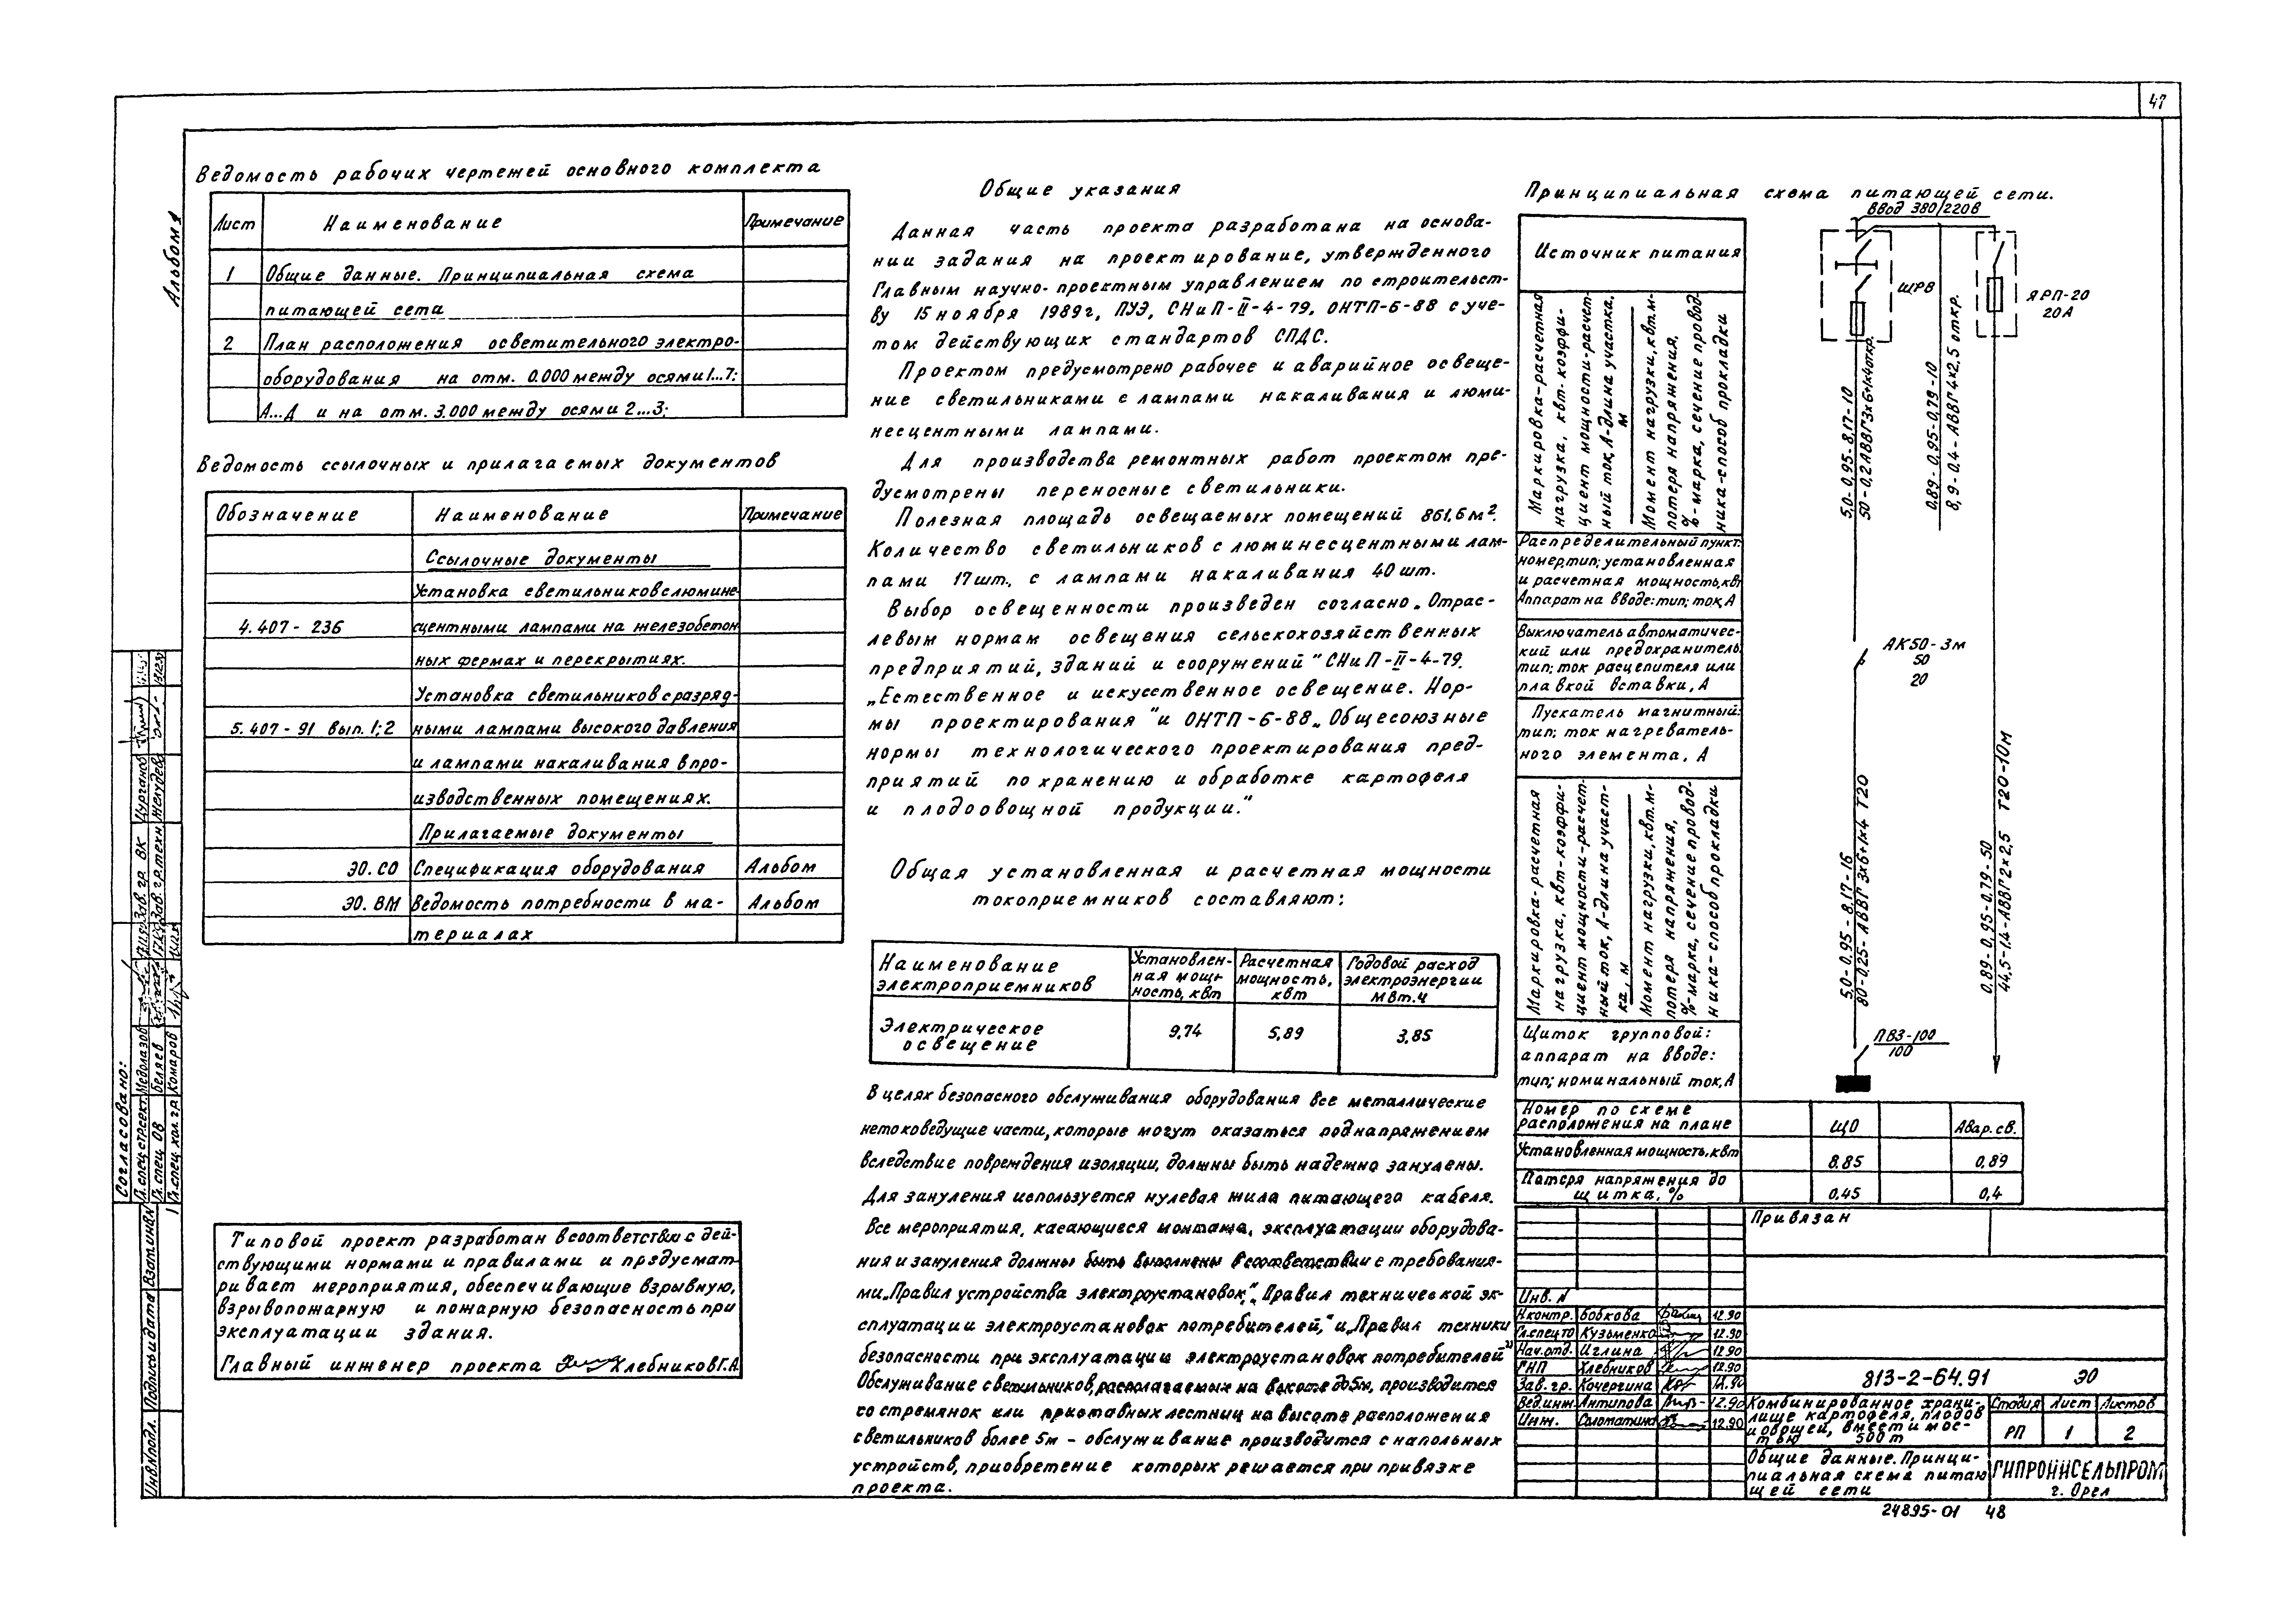 47
Альбом 1
Ведомость рабочих чертежей основного комплекта
Лист Наименование Примечание
1 Общие данные. Принципиальная схема
питающей сета
2 План расположения осветительного электро-
оборудования на отм. 0.000 между осями 1...7;
А...Д и на отм. 3.000 между осями 2...3;
Ведомость ссылочных и прилагаемых документов
Обозначение Наименование Примечание
Ссылочные документы
Установка светильников с люмине-
4.407-236 сцентными лампами на железобетон
ных фермах и перекрытиях.
Установка светильников с разряд-
5.407-91 вып. 1;2 ными лампами высокого давления
и лампами накаливания в про-
изводственных помещениях.
Прилагаемые документы
ЭО.СО Спецификация оборудования Альбом
ЭО.ВМ Ведомость потребности в ма- Альбом
териалах
Типовой проект разработан в соответствии с дей-
ствующими нормами и правилами и предусмат-
ривает мероприятия, обеспечивающие взрывную,
взрывопожарную и пожарную безопасность при
эксплуатации здания.
Главный инженер проекта Хлебников Г.А.
Общие указания
Данная часть проекта разработана на основа-
нии задания на проектирование, утвержденного
Главным научно-проектным управлением по строительст-
ву 15 ноября 1989г, ПУЭ, СНиП-II-4-79, ОНТП-6-88 с уче-
том действующих стандартов СПДС.
Проектом предусмотрено рабочее и аварийное освеще-
ние светильниками с лампами накаливания и люми-
несцентными лампами.
Для производства ремонтных работ проектом пре-
дусмотрены переносные светильники.
Полезная площадь освещаемых помещений 861,6 м².
Количество светильников с люминесцентными лам-
пами 17шт., с лампами накаливания 40 шт.
Выбор освещенности произведен согласно „Отрас-
левым нормам освещения сельскохозяйственных
предприятий, зданий и сооружений" СНиП-II-4-79.
„Естественное и искусственное освещение. Нор-
мы проектирования" и ОНТП-6-88 „Общесоюзные
нормы технологического проектирования пред-
приятий по хранению и обработке картофеля
и плодоовощной продукции."
Общая установленная и расчетная мощности
токоприемников составляют:
Наименование электроприемников Установлен-ная мощ-ность, квт Расчетная мощность, квт Годовой расход электроэнергии Мвт.ч
Электрическое освещение 9,74 5,89 3,85
В целях безопасного обслуживания оборудования все металлические
нетоковедущие части, которые могут оказаться под напряжением
вследствие повреждения изоляции, должны быть надежно занулены.
Для зануления используется нулевая жила питающего кабеля.
Все мероприятия, касающиеся монтажа, эксплуатации оборудова-
ния и зануления должны быть выполнены в соответствии с требования-
ми „Правил устройства электроустановок", „Правил технической эк-
сплуатации электроустановок потребителей," и „Правил техники
безопасности при эксплуатации электроустановок потребителей"
Обслуживание светильников, располагаемых на высоте до 5м, производится
со стремянок или приставных лестниц на высоте расположения
светильников более 5м - обслуживание производится с напольных
устройств, приобретение которых решается при привязке
проекта.
Принципиальная схема питающей сети.
Ввод 380/220В
Источник питания
ЩРВ
ЯРП-20
20А
Маркировка-расчетная
нагрузка, квт-коэффи-
циент мощности-расчет-
ный ток, А-длина участка,
м
Момент нагрузки, квт.м-
потеря напряжения,
%-марка, сечение провод-
ника-способ прокладки
5,0-0,95-8,17-10
50-0,2 АВВГ 3х6+1х4 откр.
0,89-0,95-0,79-10
8,9-0,4-АВВГ 4х2,5 откр.
Распределительный пункт:
номер, тип; установленная
и расчетная мощность, квт
Аппарат на вводе: тип; ток, А
Выключатель автоматичес-
кий или предохранитель
тип; ток расцепителя или
плавкой вставки, А
АК50-3м
50
20
Пускатель магнитный:
тип; ток нагреватель-
ного элемента, А
Маркировка-расчетная
нагрузка, квт-коэффи-
циент мощности-расчет-
ный ток, А-длина участ-
ка, м
Момент нагрузки, квт.м-
потеря напряжения,
%-марка, сечение провод-
ника-способ прокладки
5,0-0,95-8,17-16
80-0,25-АВВГ 3х6+1х4 Т20
0,89-0,95-0,79-50
44,5-1,4-АВВГ 2х2,5 Т20-10м
Щиток групповой:
аппарат на вводе:
тип; номинальный ток, А
ПВЗ-100
100
Номер по схеме расположения на плане ЩО Авар. св.
Установленная мощность, квт 8.85 0,89
Потеря напряжения до щитка, % 0,45 0,4
Привязан
Инв. N
Н.контр. Бобкова 12.90
Гл.спец то Кузьменко 12.90
Нач.отд. Иглина 12.90
ГНП Хлебников 12.90
Зав. гр. Кочергина
Вед.инж Антипова 12.90
Инж. Соломатина 12.90
813-2-64.91 ЭО
Комбинированное храни-
лище картофеля, плодов
и овощей, вместимос-
тью 500 т
Стадия Лист Листов
РП 1 2
Общие данные. Принци-
пиальная схема питаю
щей сети
ГИПРОНИСЕЛЬПРОМ
г. Орел
24895-01 48
Согласовано:
Гл. спец ОВ Беляев
Гл. спец. хол. гр. Комаров
Зав. гр. ВК Цурганов
Зав. гр. техн Желудева
Инв.N подл. Подпись и дата Взам инв. N